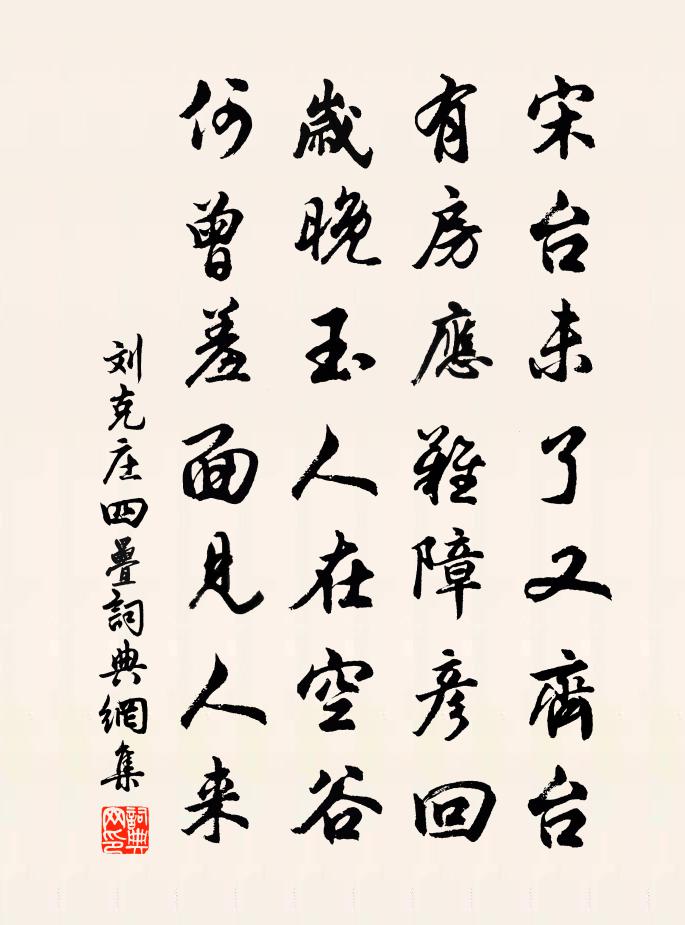 宋台未了又齊台
有房應難障彦回
歲晚玉人在空谷
何曾羞面見人来
刘克庄四疊詞典網集
詞典网印